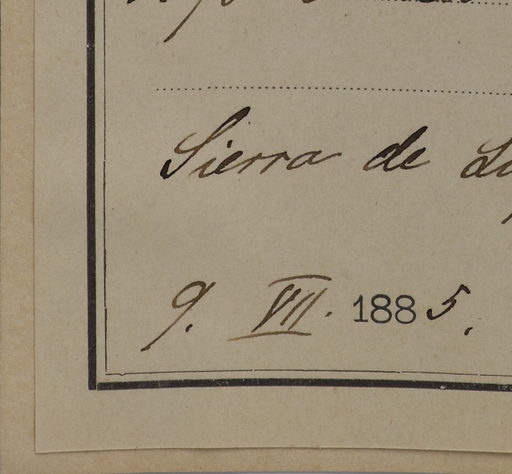 Sierra de
9. VII. 1885.